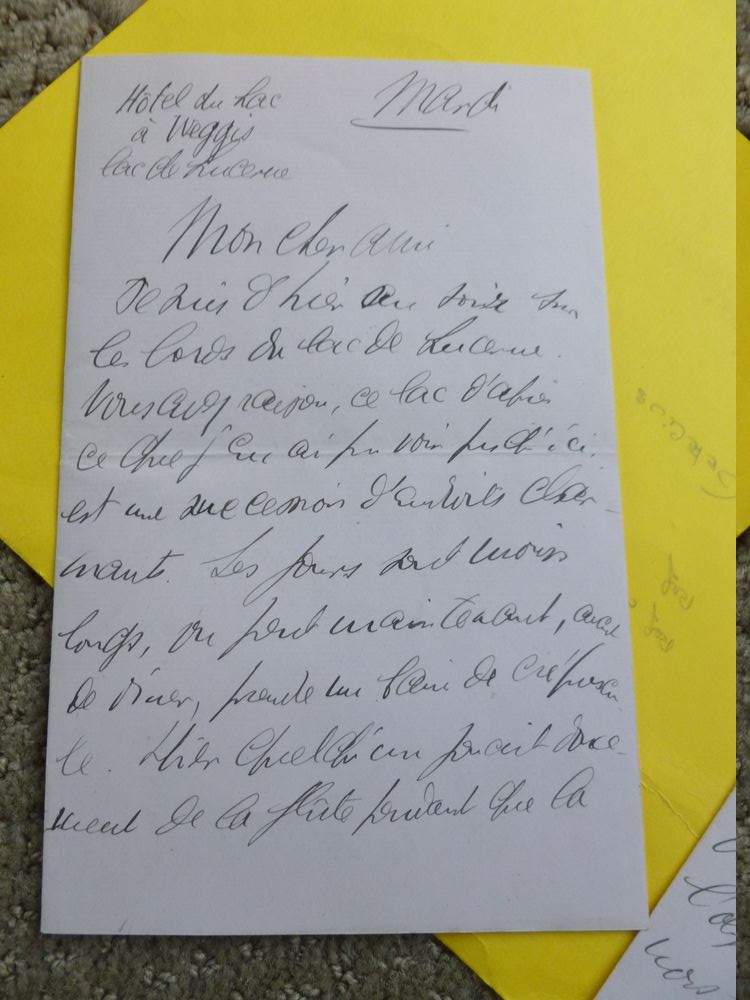 Hôtel du Lac
à Weggis
lac de Lucerne
Mardi
Mon cher ami
Je suis d'hier au soir sur
les bords du lac de Lucerne.
Vous avez raison, ce lac d'après
ce que j'en ai pu voir jusqu'ici,
est une succession d'endroits char-
mants. Les jours sont moins
longs, on peut maintenant, avant
de dîner, prendre un bain de crépuscu-
le. Hier quelqu'un jouait douce-
ment de la flûte pendant que la